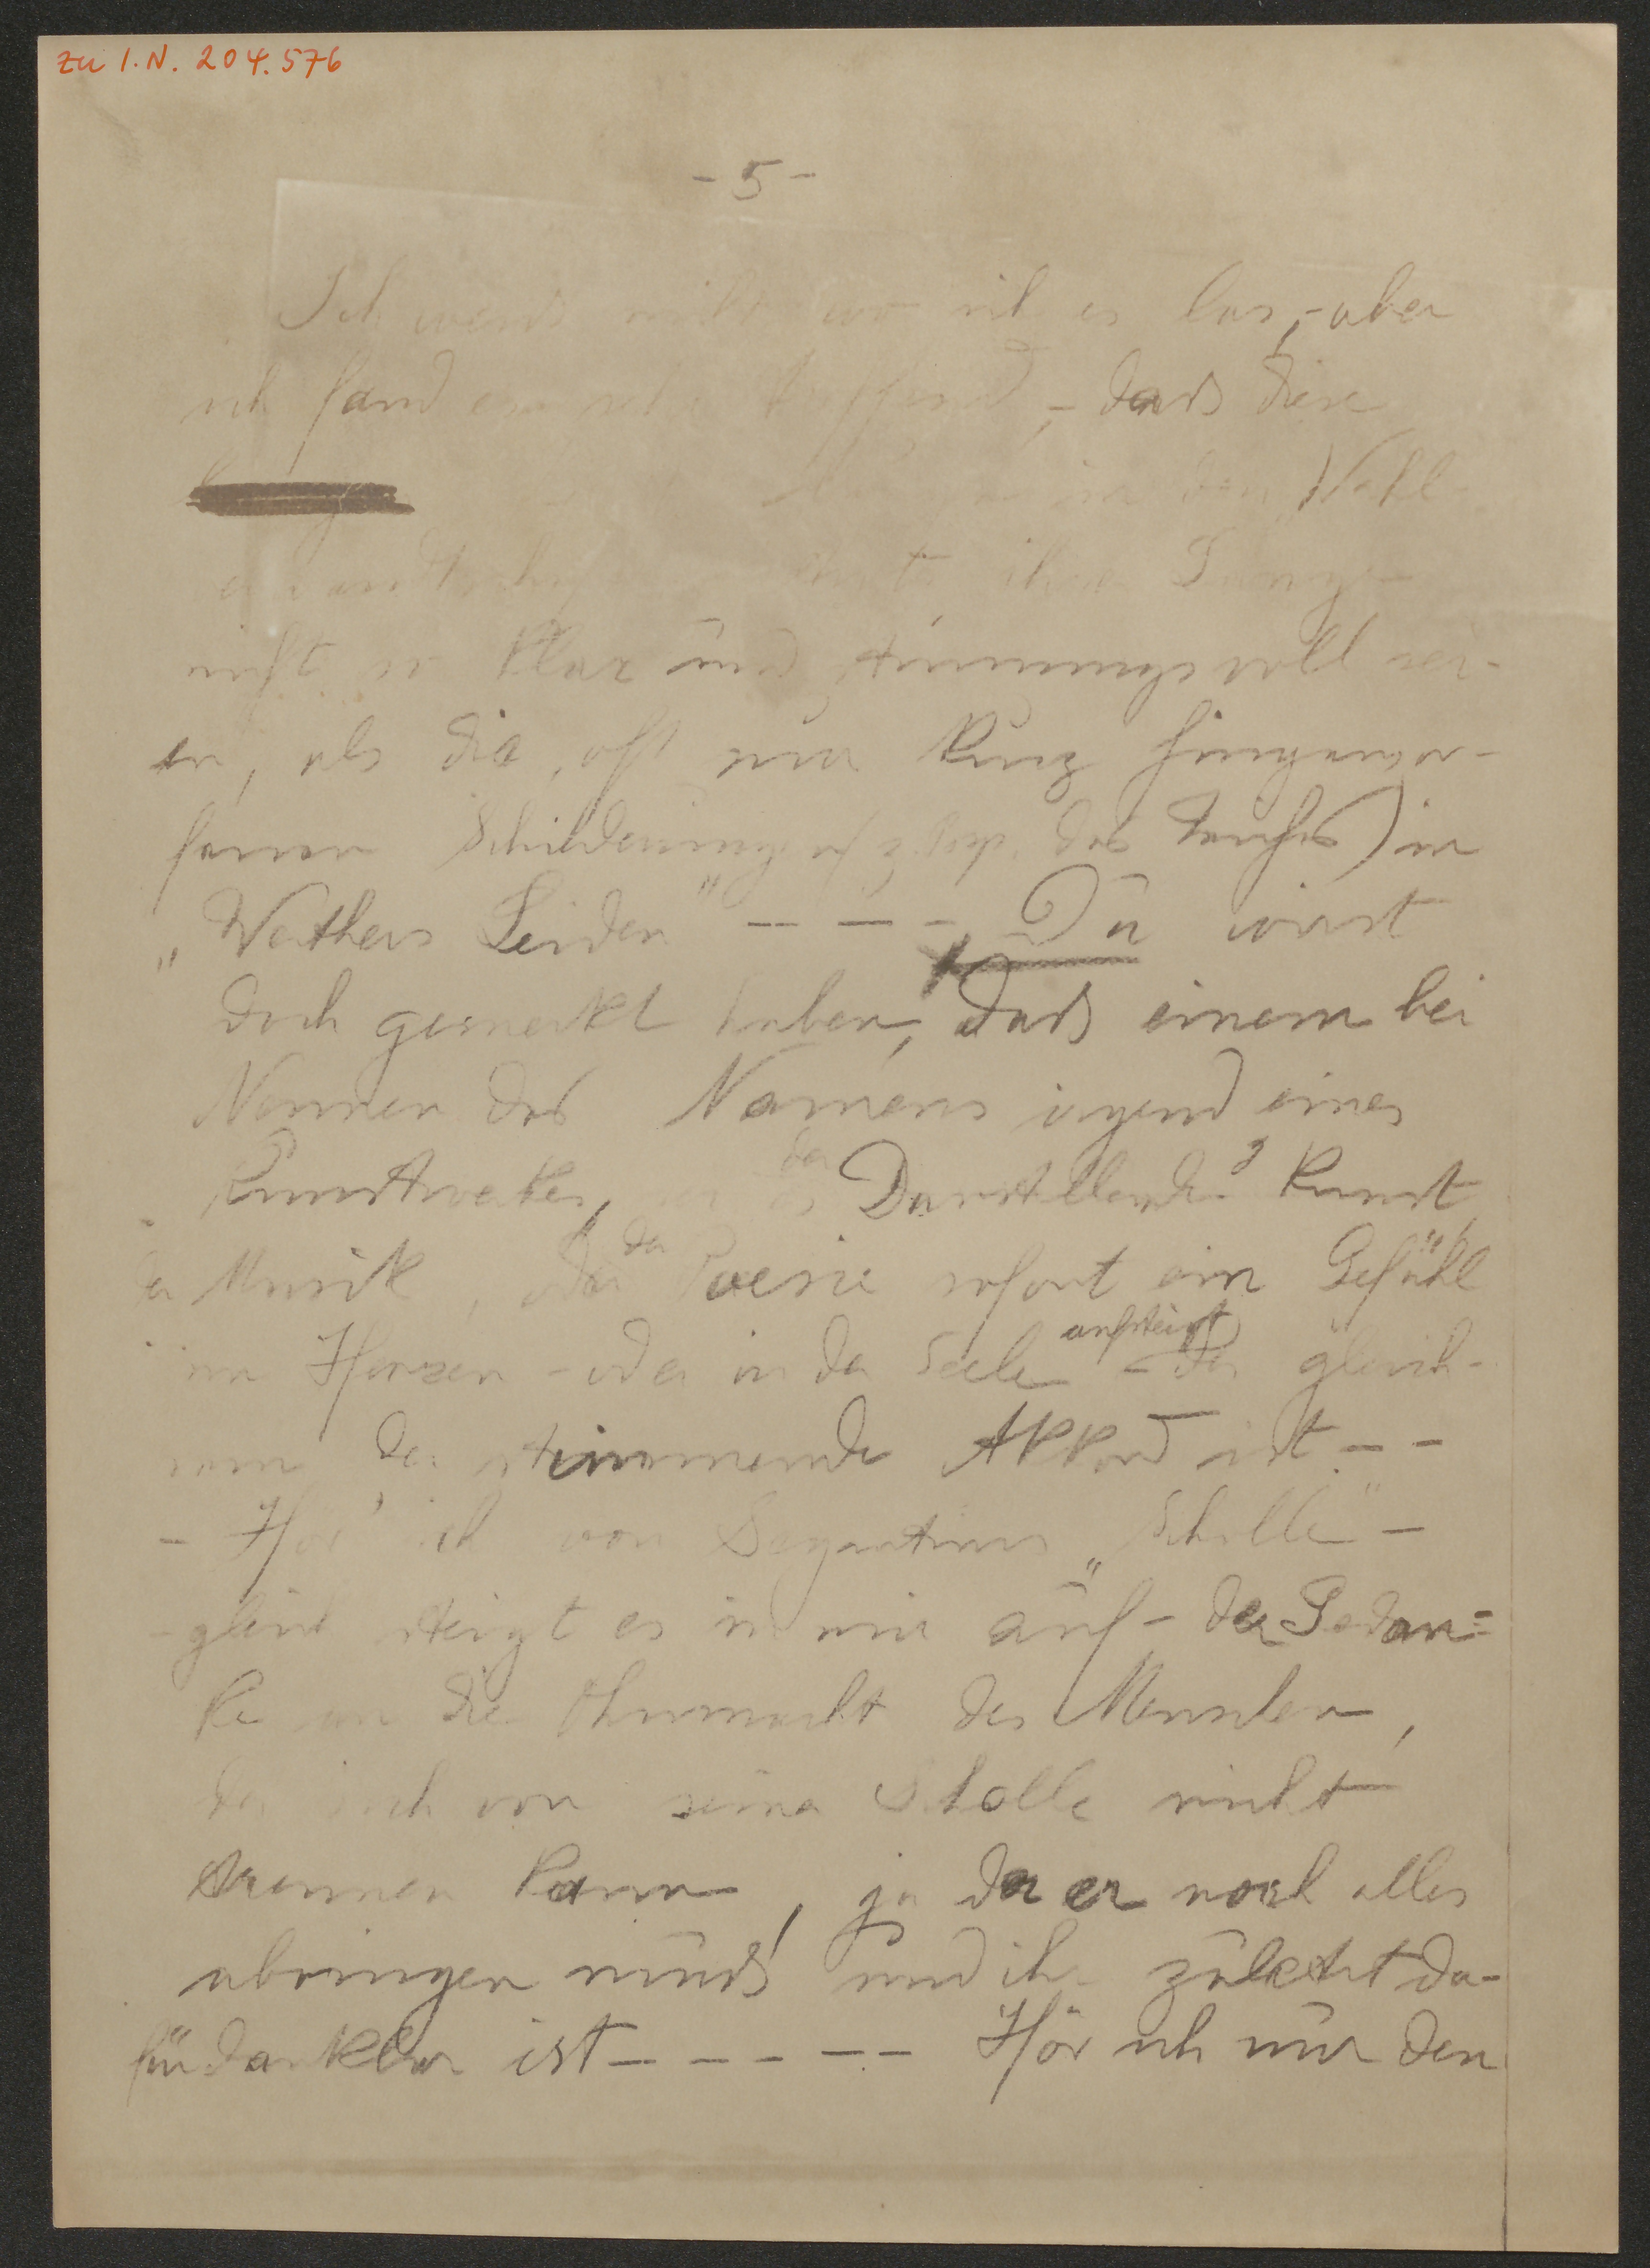 zu I.N. 204.576
- 5 -
Ich weiss nicht wo ich es las, - aber
ich fand es sehr treffend, - dass diese
in den Wahl-
verwandtschaften ihrer Länge
nicht so klar und stimmungsvoll sei-
en, als die, oft nur kurz hingewor-
fenen Schilderungen (z. Bsp. des Dorfes) in
„Werthers Leiden" - - - Du wirst
doch gemerkt haben, dass einem bei
Nennen des Namens irgend eines
Kunstwerkes, der Darstellenden Kunst,
der Musik, oder der Poesie sofort ein Gefühl
im Herzen - oder in der Seele aufsteigt - das gleich-
sam der stimmende Akkord ist - -
- Hör' ich von Segantinis „Scholle" -
- gleich steigt es in mir auf - der Gedan=
ke an die Ohnmacht des Menschen,
der sich von seiner Scholle nicht
trennen kann, ja der er noch alles
abringen muss und ihr zuletzt da-
für dankbar ist - - - - - Hör ich nur den